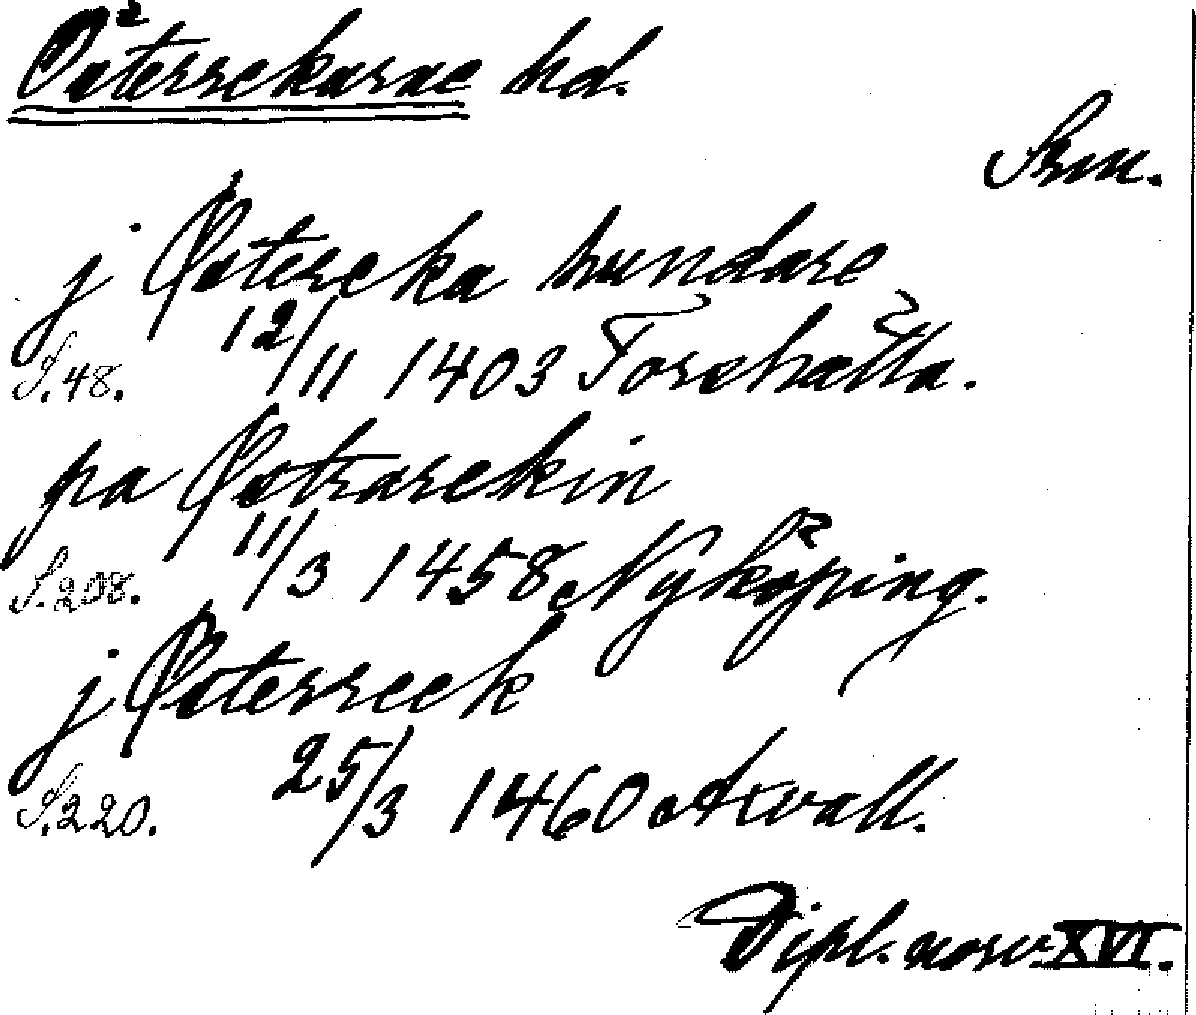 Österrekarne hd.
Srm.
j Østereka hundare
S. 48. 12/11 1403 Torshälla.
pa Østrarekin
S. 208. 11/3 1458 Nyköping.
j Østerreek
S. 220. 25/3 1460 Axvall.
Dipl. norv. XVI.